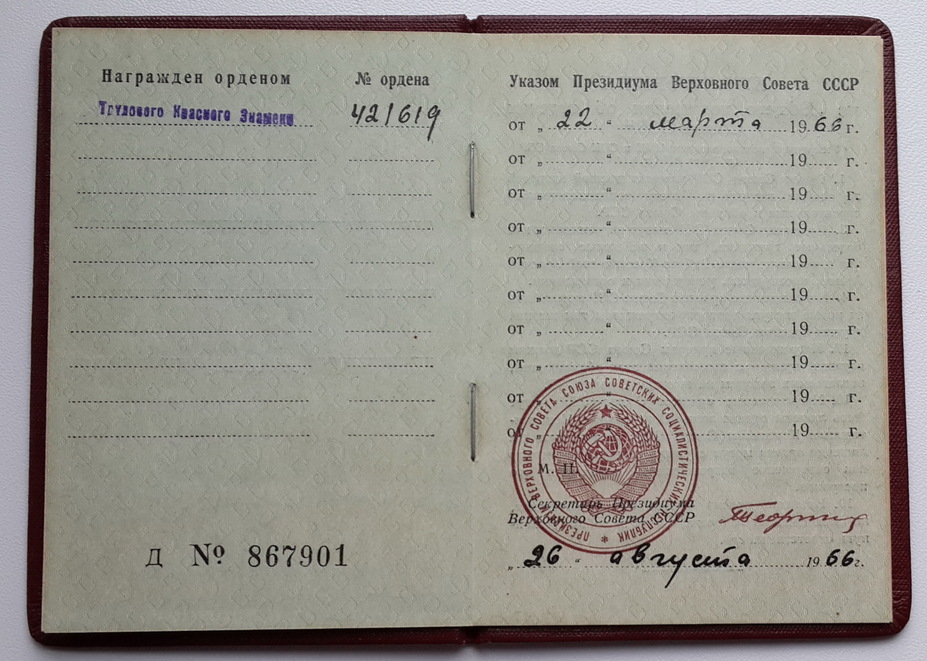 Награжден орденом № ордена
Трудового Красного Знамени 421619
Д № 867901
Указом Президиума Верховного Совета СССР
от „ 22 “ марта 1966 г.
от „ “ 19 г.
от „ “ 19 г.
от „ “ 19 г.
от „ “ 19 г.
от „ “ 19 г.
от „ “ 19 г.
от „ “ 19 г.
от „ “ 19 г.
от „ “ 19 г.
ПРЕЗИДИУМ ВЕРХОВНОГО СОВЕТА СОЮЗА СОВЕТСКИХ СОЦИАЛИСТИЧЕСКИХ РЕСПУБЛИК
М. П.
Секретарь Президиума
Верховного Совета СССР
„ 26 “ августа 1966 г.